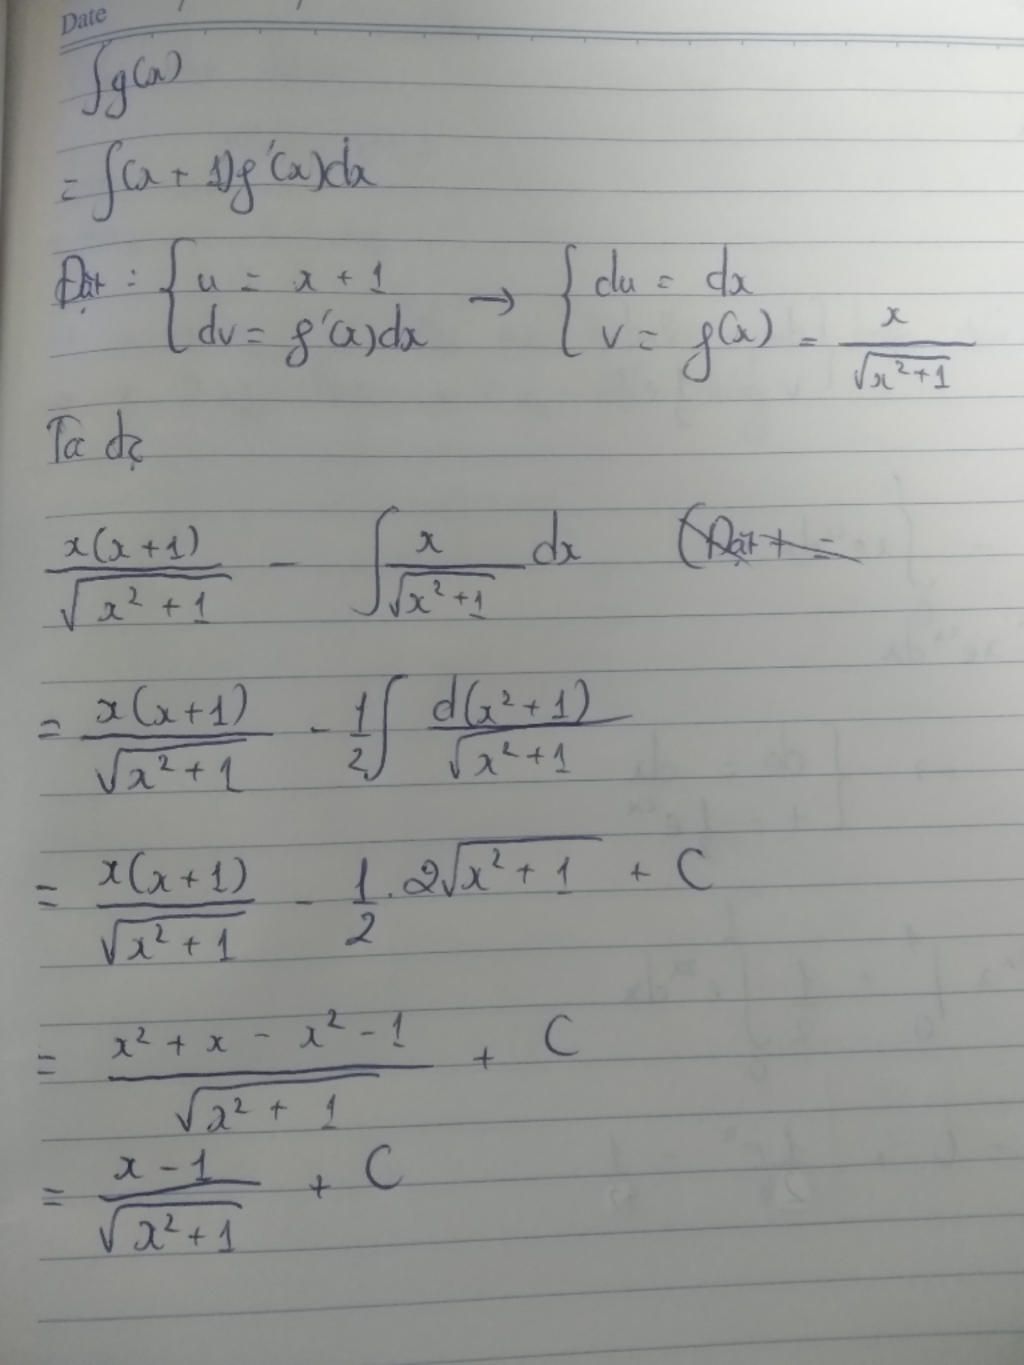 Date
∫g(x)
= ∫(x + 1)f'(x)dx
Đặt : { u = x + 1 → { du = dx
dv = f'(x)dx v = f(x) = x/√(x² + 1)
Ta đc
x(x + 1)/√(x² + 1) - ∫ x/√(x² + 1) dx (Đặt t =
= x(x + 1)/√(x² + 1) - 1/2 ∫ d(x² + 1)/√(x² + 1)
= x(x + 1)/√(x² + 1) - 1/2 . 2√(x² + 1) + C
= (x² + x - x² - 1)/√(x² + 1) + C
= (x - 1)/√(x² + 1) + C